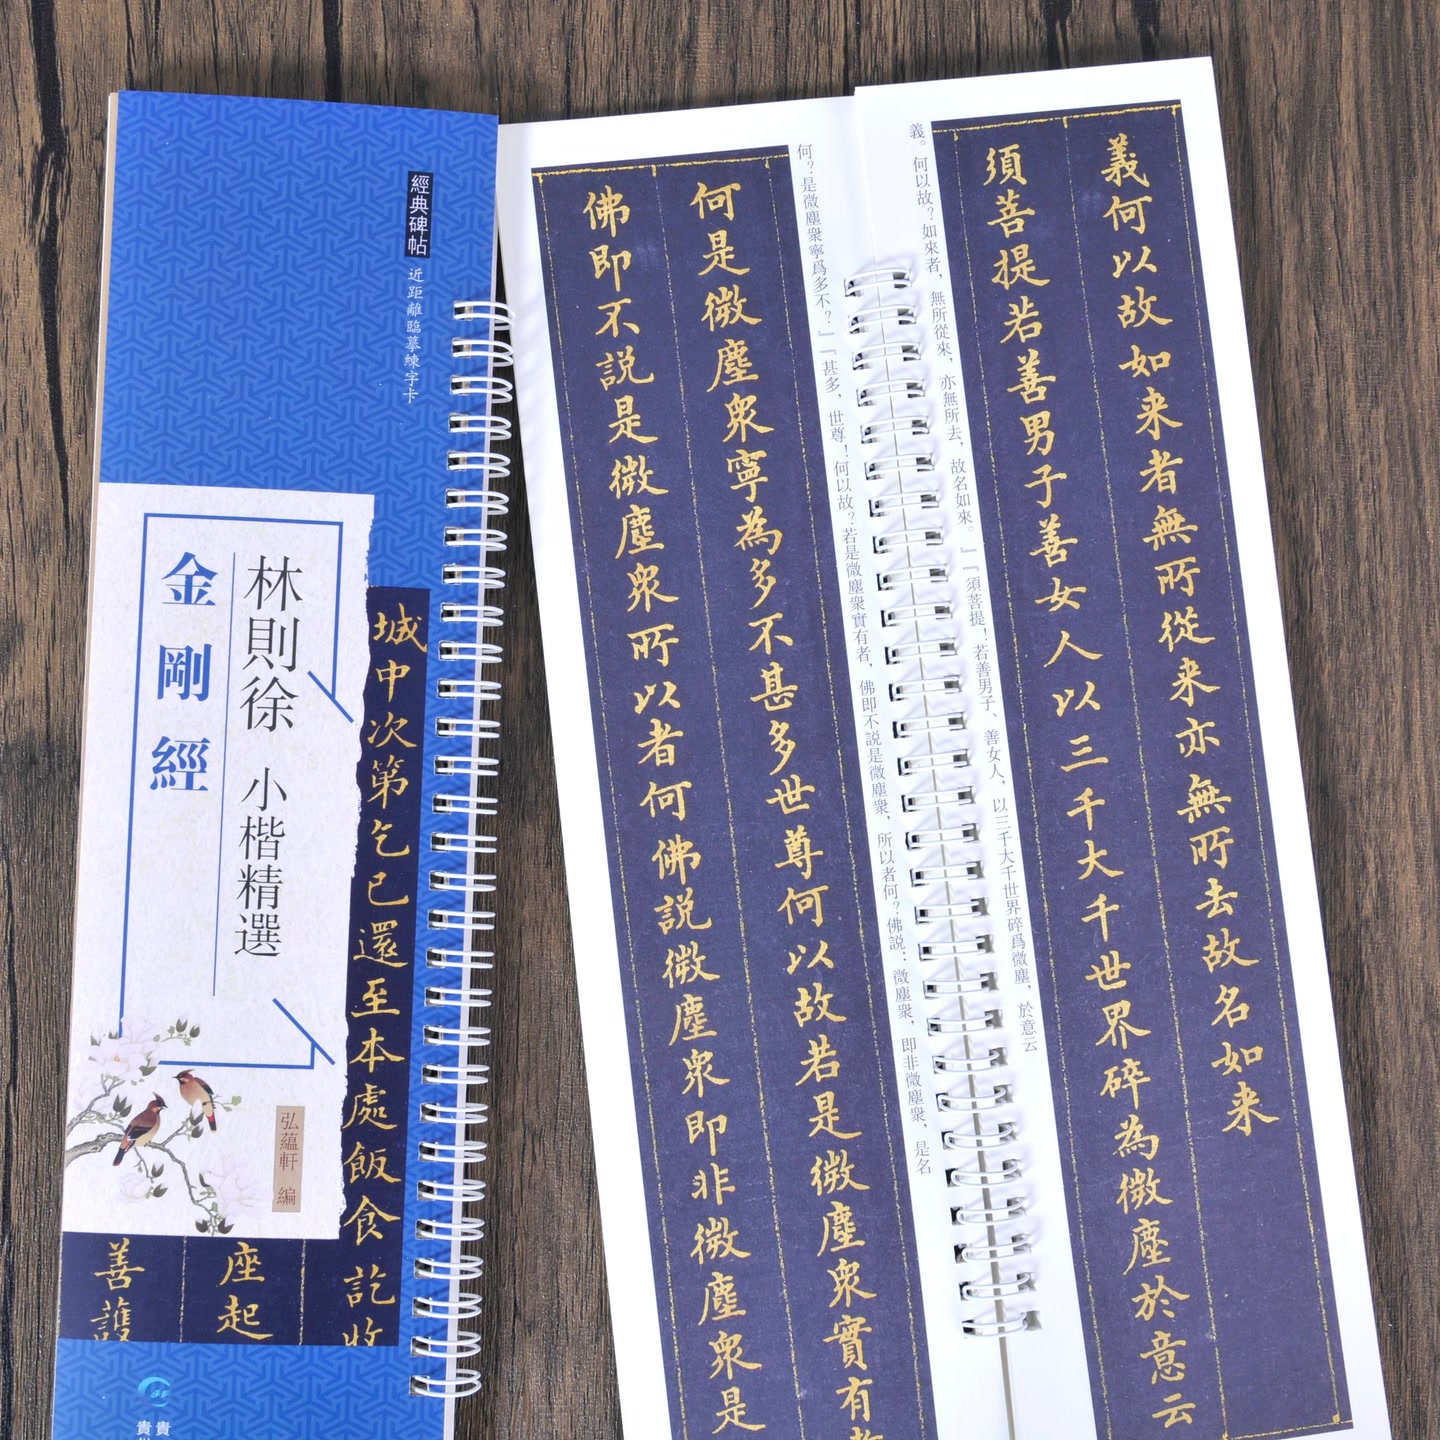 經典碑帖
近距離臨摹練字卡
林則徐 小楷精選
金剛經
弘藴軒 編
城中次第乞已還至本處飯食訖收
座起
善護
義何以故如来者無所從来亦無所去故名如来
須菩提若善男子善女人以三千大千世界碎為微塵於意云
義。何以故？如來者，無所從來，亦無所去，故名如來。』『須菩提！若善男子、善女人，以三千大千世界碎爲微塵，於意云
何？是微塵衆寧爲多不？』『甚多，世尊！何以故？若是微塵衆實有者，佛即不説是微塵衆，所以者何？佛説：微塵衆，即非微塵衆，是名
何是微塵衆寧為多不甚多世尊何以故若是微塵衆實有
佛即不説是微塵衆所以者何佛説微塵衆即非微塵衆是